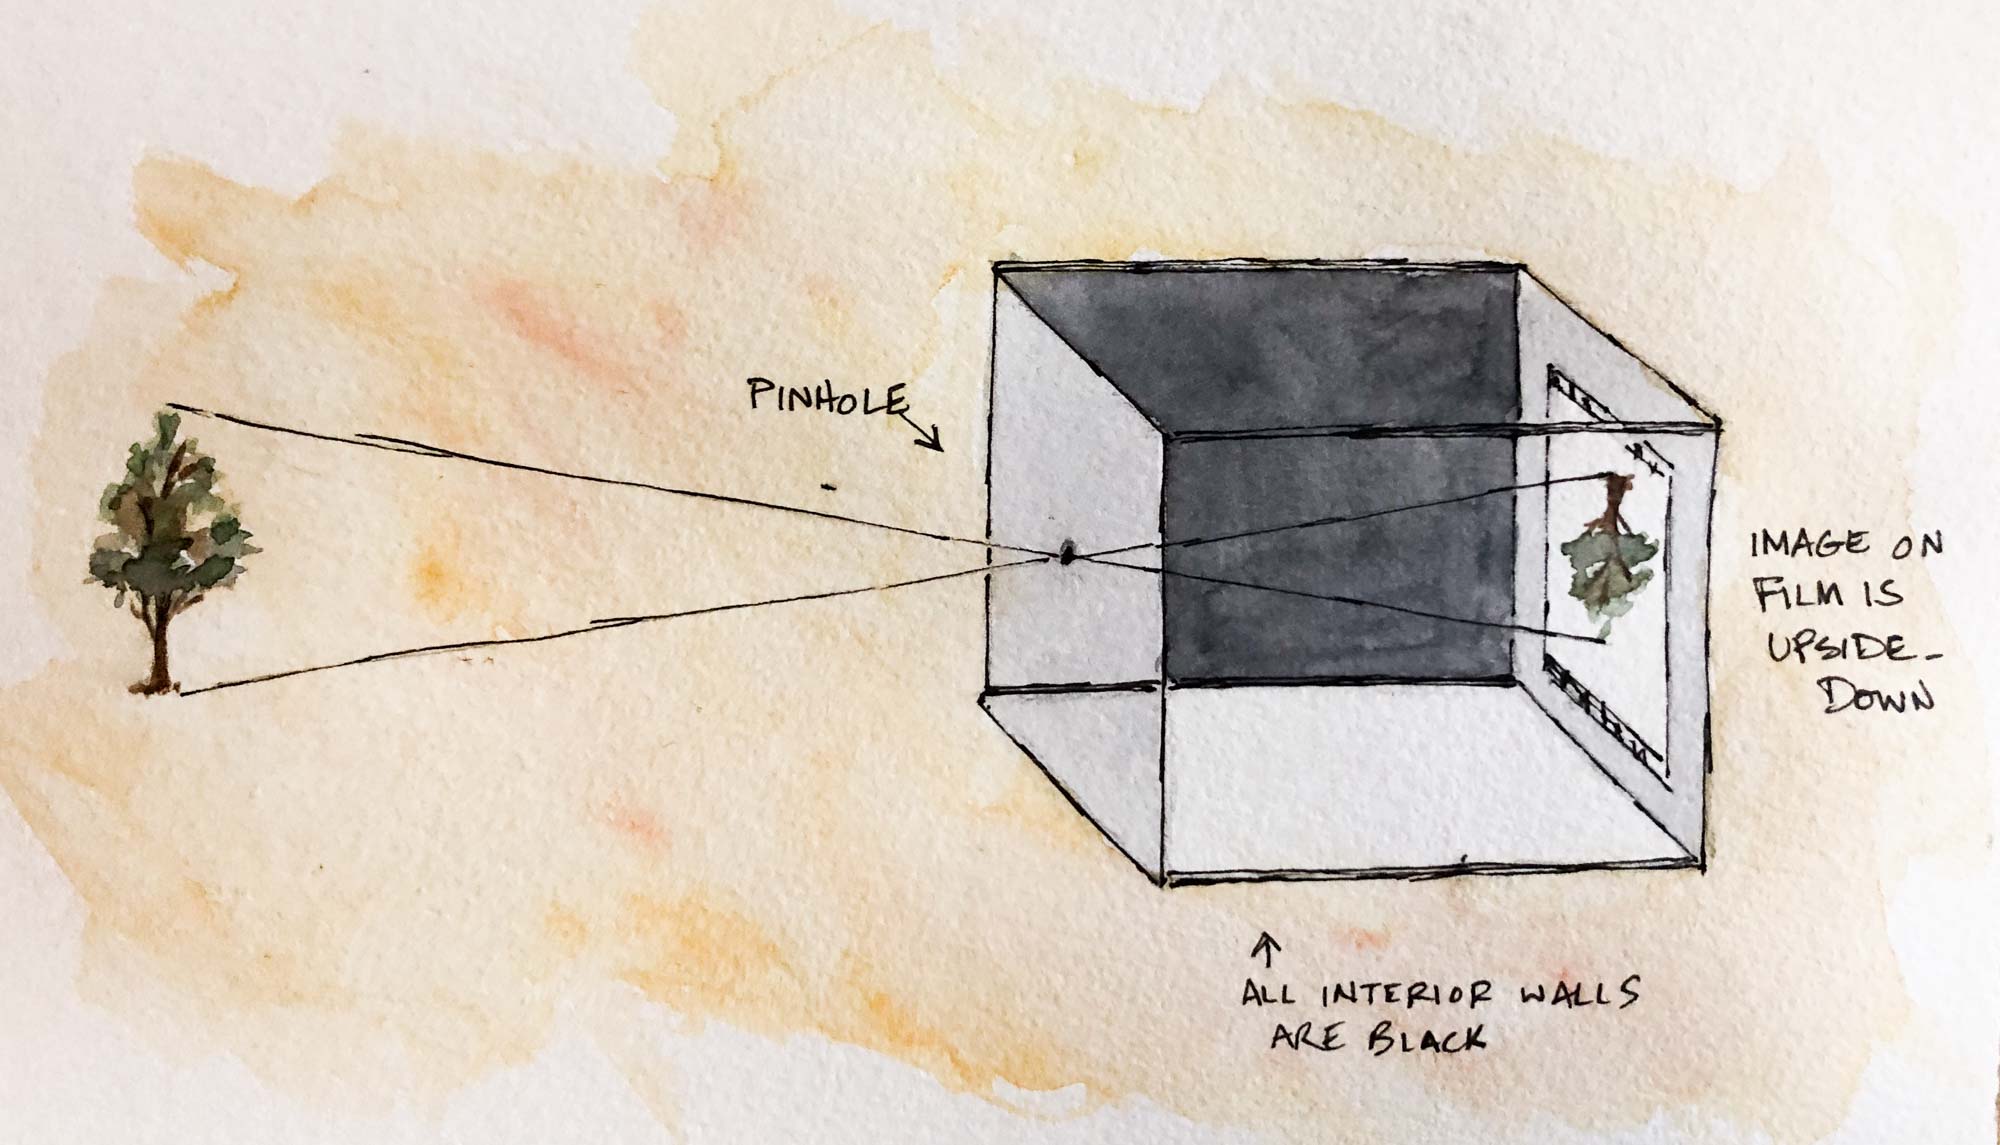 PINHOLE
IMAGE ON
FILM IS
UPSIDE-
DOWN
ALL INTERIOR WALLS
ARE BLACK